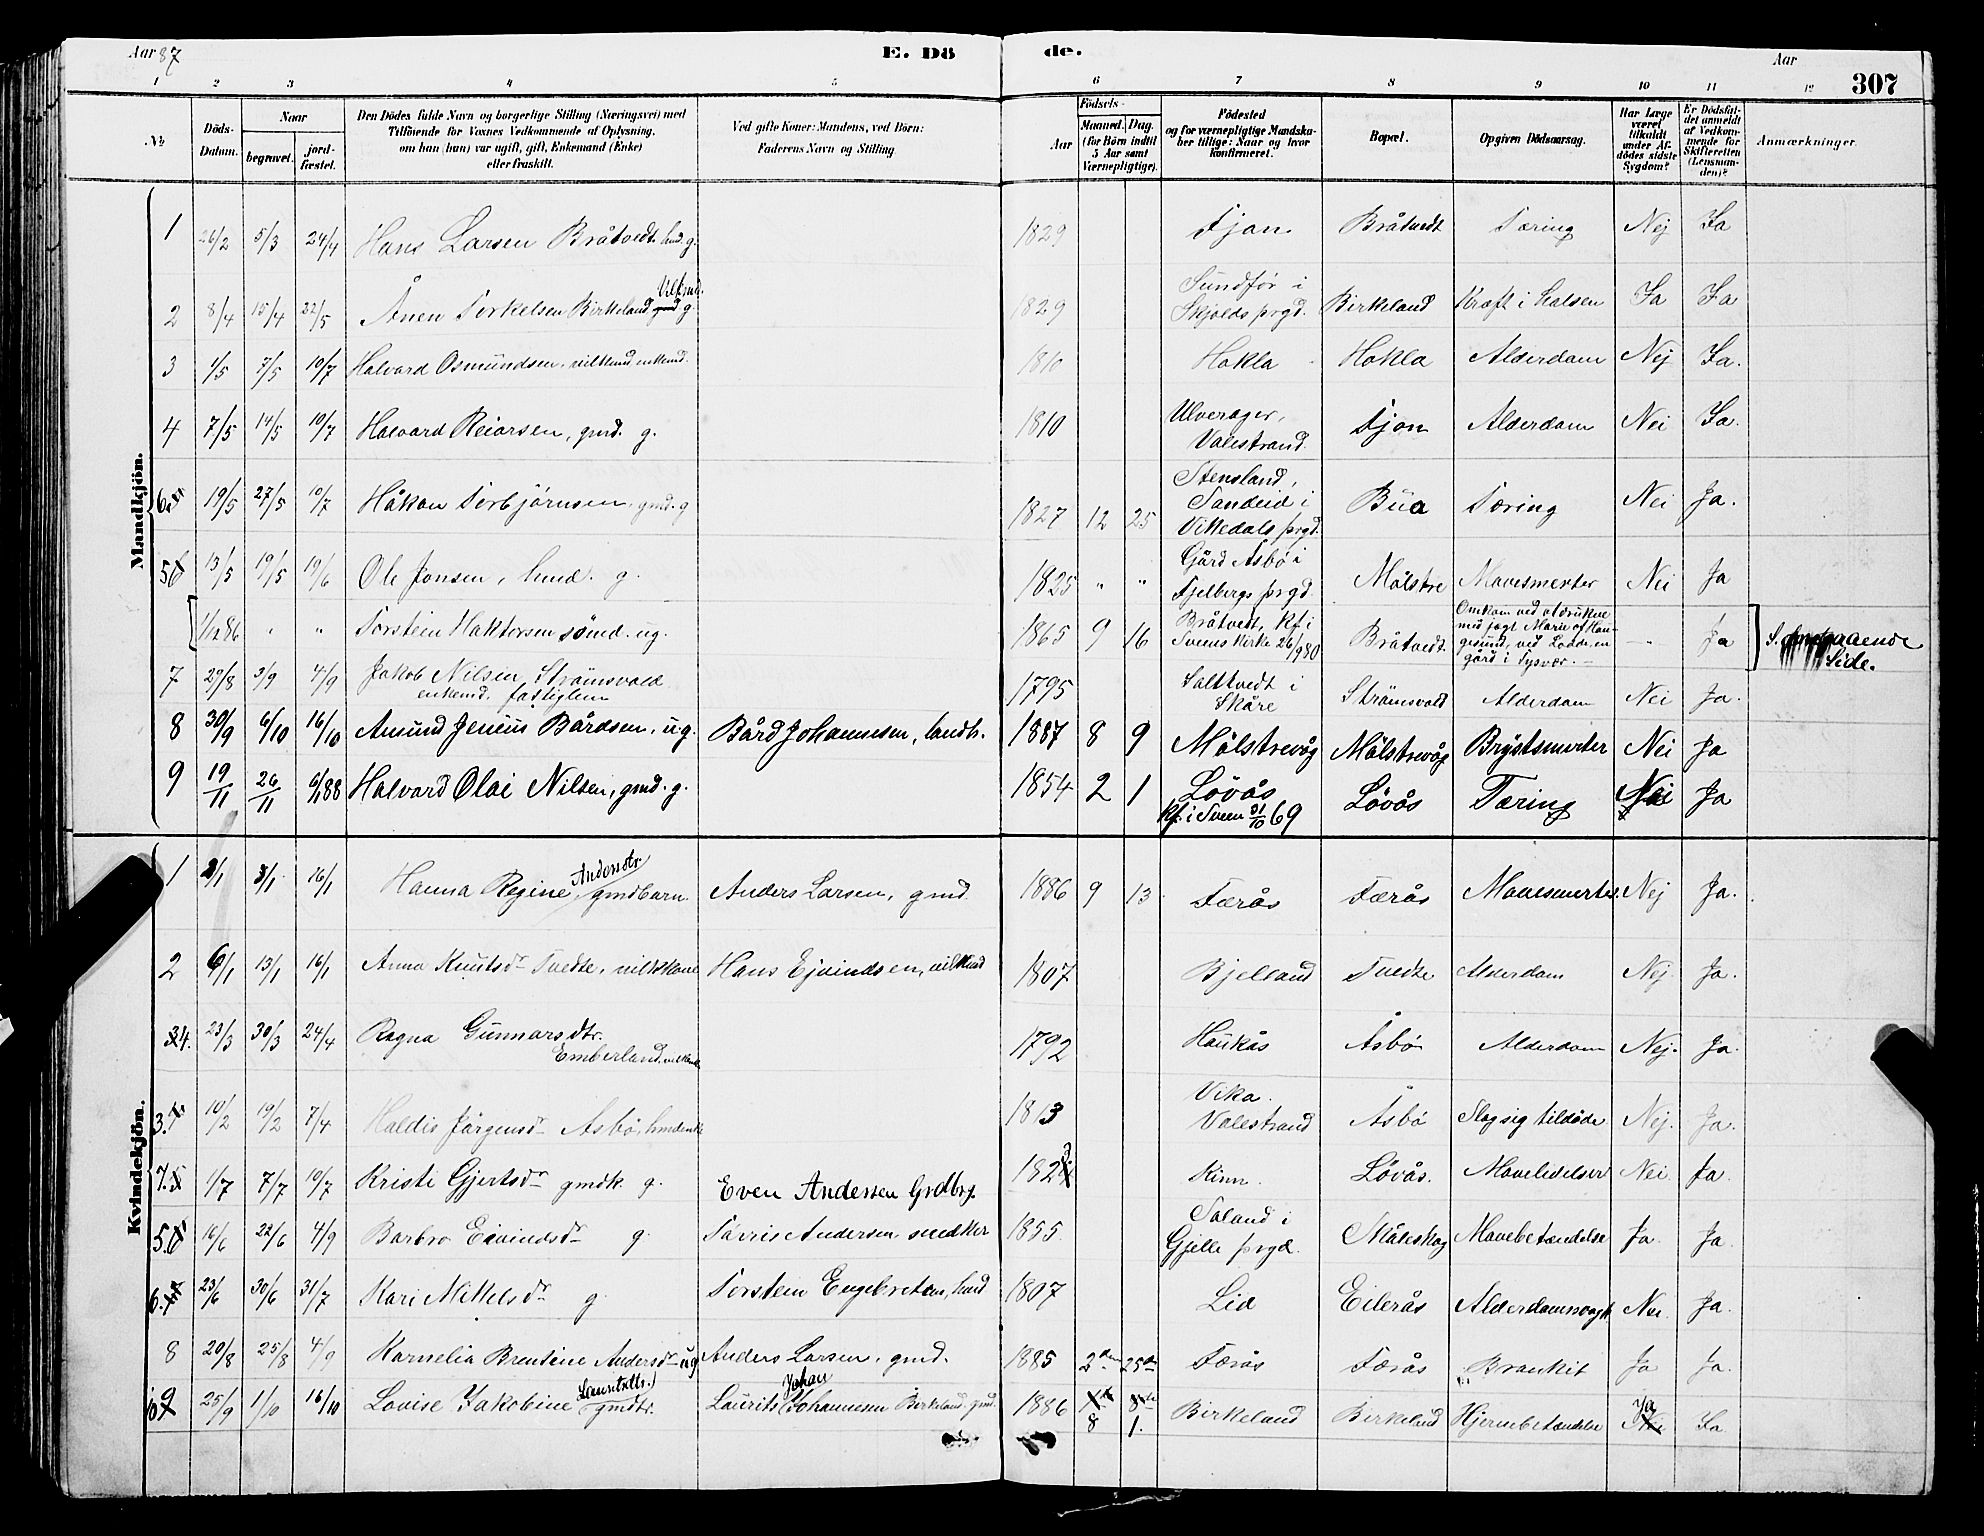 Aar 87 E. Dø de. Aar
307
1 2 3 4 5 6 7 8 9 10 11 12
No Döds-Datum. Naar begravet. jord-fæstet. Den Dödes fulde Navn og borgerlige Stilling (Næringsvei) med Tilföiende for Voxnes Vedkommende af Oplysning, om han (hun) var ugift, gift, Enkemand (Enke) eller fraskilt. Ved gifte Koner: Mandens, ved Börn: Faderens Navn og Stilling Födsels- Aar Maaned. Dag. (for Börn indtil 5 Aar samt Værnepligtige). Födested og for værnepligtige Mandskaber tillige: Naar og hvor konfirmeret. Bopæl. Opgiven Dödsaarsag. Har Læge været tilkaldt under Afdödes sidste Sygdom? Er Dödsfaldet anmeldt af Vedkommende for Skifteretten (Lensmanden)? Anmærkninger.
Mandkjön.
1 26/2 5/3 24/4 Hans Larsen Bråtvedt. hmd. g. 1829 Tjon Bråtvedt Tæring Nej Ja
2 8/4 15/4 22/5 Ånen Torkelsen Birkeland gmd Vilkmd. g. 1829 Sundför i Skjolds prgd. Birkeland Kræft i Halsen Ja Ja
3 1/5 7/5 10/7 Halvard Osmundsen, vilkmd enkemd. 1810 Hokla Hokla Alderdom Nej Ja.
4 7/5 14/5 10/7 Halvard Reiarsen, gmd. g. 1810 Ulverager, Valestrand. Tjon Alderdom Nei Ja.
6 19/5 27/5 10/7 Håkon Torbjörnsen, gmd. g 1827 12 25 Stensland, Sandeid i Vikedals prgd. Bua Tæring Nei Ja.
5 13/5 19/5 19/6 Ole Jonsen, hmd. g. 1825 " " Gård Åsbö i Fjelbergs prgd. Målstre Mavesmerter Nei Ja
1/12 86 " " Torstein Haktorsen sömd. ug. 1865 9 16 Bråtvedt, kf i Sveens kirke 26/9 80 Bråtvedt. Omkom ved at drukne med jagt Marie af Haugesund, ved en gård i Tysvær. - Ja S. Side.
7 29/8 3/9 4/9 Jakob Nilsen Strömsvold enkemd. fattiglem 1795 Salttvedt i Skåre Strömsvold Alderdom Nei Ja.
8 30/9 6/10 16/10 Amund Jenius Bårdsen, ug. Bård Johannesen, landh. 1887 8 9 Målstrevåg Målstrevåg Brystsmerter Nei Ja
9 19/11 26/11 6/1 88 Halvard Olai Nilsen, gmd. g. 1854 2 1 Lövås kf. i Sveen 31/10 69 Lövås Tæring Nei Ja
Kvindekjön.
1 2/1 3/1 16/1 Hanna Regine Andersdtr, gmdbarn. Anders Larsen, gmd. 1886 9 13 Færås Færås Mavesmerter. Nej Ja.
2 6/1 13/1 16/1 Anna Knutsdr Tvedte, vilkkone Hans Ejvindsen, vilkmd 1807 Bjelland Tvedte Alderdom Nej. Ja.
4. 23/3 30/3 24/4 Ragna Gunnarsdtr. Emberland. 1792 Haukås Åsbö Alderdom Nej. Ja.
3. 10/2 19/2 7/4 Haldis Jörgensdr Åsbö, hmdenke 1813 Vika. Valestrand Åsbö Slog sig tildöde Nej. Ja.
7. 1/7 7/7 10/7 Kristi Gjertsdr gmdk. g. Even Andersen Grdbr. 1823 Kinn. Lövås. Mavelidelser Nei Ja.
5. 16/6 22/6 4/9 Barbro Eivindsdr g. Andersen snedker 1855 Soland i Gjelle prgd. Mavebetændelse Ja. Ja.
6. 23/6 30/6 31/7 Kari Mikelsdr g. Torstein Engebretsen, hmd 1807 Lid Eilerås Alderdomssvagh Nei. Ja.
8 20/8 25/8 4/9 Karnelia Brentine Andersdr ug Anders Larsen, gmd. 1885 2den 25de Færås Færås Bronkit Ja Ja.
9 25/9 1/10 16/10 Lovise Jakobine Lauritsdtr. gmdtr. Laurits Johan Johannesen Birkeland. gmd. 1886 8 1. Birkeland Birkeland Hjernebetændelse Ja Ja